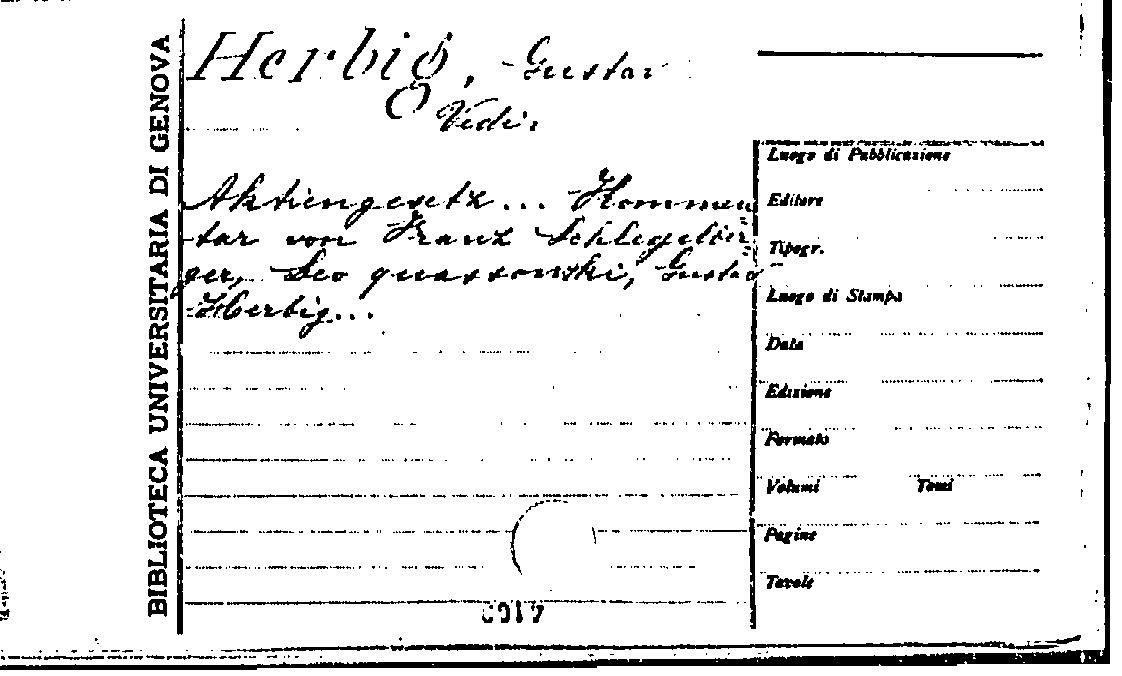 BIBLIOTECA UNIVERSITARIA DI GENOVA
Herbig, Gustav
Vedi:
Aktiengesetz... Kommen
tar von Franz Schlegelber
ger, Leo Quassowski, Gustav
Herbig...
Luogo di Pubblicazione
Editore
Tipogr.
Luogo di Stampa
Data
Edizione
Formato
Volumi Tomi
Pagine
Tavole